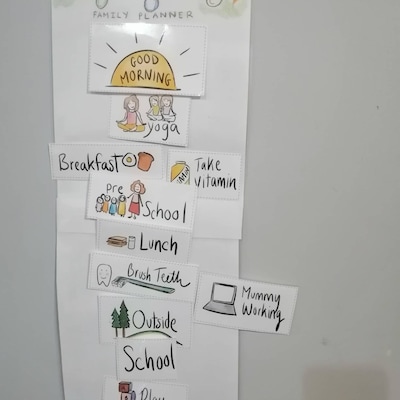 FAMILY PLANNER
GOOD
MORNING
yoga
Breakfast
Take
Vitamin
Pre
School
Lunch
Brush Teeth
Mummy
Working
Outside
School
Play